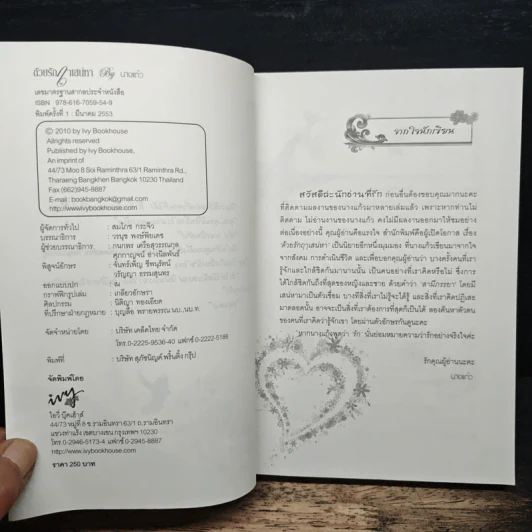 ด้วยรักฤาเสน่หา By นางแก้ว
เลขมาตรฐานสากลประจำหนังสือ
ISBN 978-616-7059-54-9
พิมพ์ครั้งที่ 1 : มีนาคม 2553
© 2010 by Ivy Bookhouse
Allrights reserved.
Published by Ivy Bookhouse,
An imprint of
44/73 Moo 8 Soi Raminthra 63/1 Raminthra Rd.,
Tharaeng Bangkhen Bangkok 10230 Thailand
Fax (662)945-8887
E-mail : bookbangkok@gmail.com
http://www.ivybookhouse.com
ผู้จัดการทั่วไป : สมไกร กระจิว
บรรณาธิการ : วรนุช พงษ์พียเดช
ผู้ช่วยบรรณาธิการ : กนกพร เครือสุวรรณกุล
ศุภกาญจน์ อ่างนิลพันธ์
พิสูจน์อักษร : จันทร์เพ็ญ ชีพนุรัตน์
วริญญา ธรรมสุนทร
ออกแบบปก : ณ
กราฟฟิกรูปเล่ม : เกลียวอักษรา
ศิลปกรรม : นิติญา ทองเอียด
ที่ปรึกษาฝ่ายกฎหมาย : บุญลือ พรายพรรณ นบ.,นบ.ท.
จัดจำหน่ายโดย : บริษัท เคล็ดไทย จำกัด
โทร.0-2225-9536-40 แฟกซ์ 0-2222-5188
พิมพ์ที่ : บริษัท สุภัชนิญค์ พริ้นติ้ง กรุ๊ป
จัดพิมพ์โดย
ivy
ไอวี่ บุ๊คเฮ้าส์
44/73 หมู่ที่ 8 ซ.รามอินทรา 63/1 ถ.รามอินทรา
แขวงท่าแร้ง เขตบางเขน กรุงเทพฯ 10230
โทร.0-2946-5173-4 แฟกซ์ 0-2945-8887
http://www.ivybookhouse.com
ราคา 250 บาท
จากใจนักเขียน
สวัสดีค่ะนักอ่านที่รัก ก่อนอื่นต้องขอบคุณมากนะคะ
ที่ติดตามผลงานของนางแก้วมาหลายเล่มแล้ว เพราะหากท่านไม่
ติดตาม ไม่อ่านงานของนางแก้ว คงไม่มีผลงานออกมาให้ชมอย่าง
ต่อเนื่องอย่างนี้ คุณผู้อ่านคือแรงใจ สำนักพิมพ์คือผู้เปิดโอกาส เรื่อง
'ด้วยรักฤาเสน่หา' เป็นนิยายอีกหนึ่งมุมมอง ที่นางแก้วเขียนมาจาก
จากสังคม การดำเนินชีวิต และเพื่อบอกคุณผู้อ่านว่า บางครั้งคนที่เรา
รู้จักและใกล้ชิดกันมานานนั้น เป็นคนอย่างที่เราคิดหรือไม่ ซึ่งการ
ได้ใกล้ชิดกันถึงที่สุดของหญิงและชาย ด้วยคำว่า 'สามีภรรยา' โดยมี
เสน่หามาเป็นตัวเชื่อม บางทีสิ่งที่เราไม่รู้จะได้รู้ และสิ่งที่เราคิดปฏิเสธ
มาตลอดนั้น อาจจะเป็นสิ่งที่เราต้องการที่สุดก็เป็นได้ ลองค้นหาตัวตน
ของคนที่เราคิดว่ารู้จักเขา โดยผ่านตัวอักษรกันดูนะคะ
"หากนางแก้วพูดว่า 'รัก' นั่นย่อมหมายความว่ารักอย่างจริงใจค่ะ
รักคุณผู้อ่านนะคะ
นางแก้ว